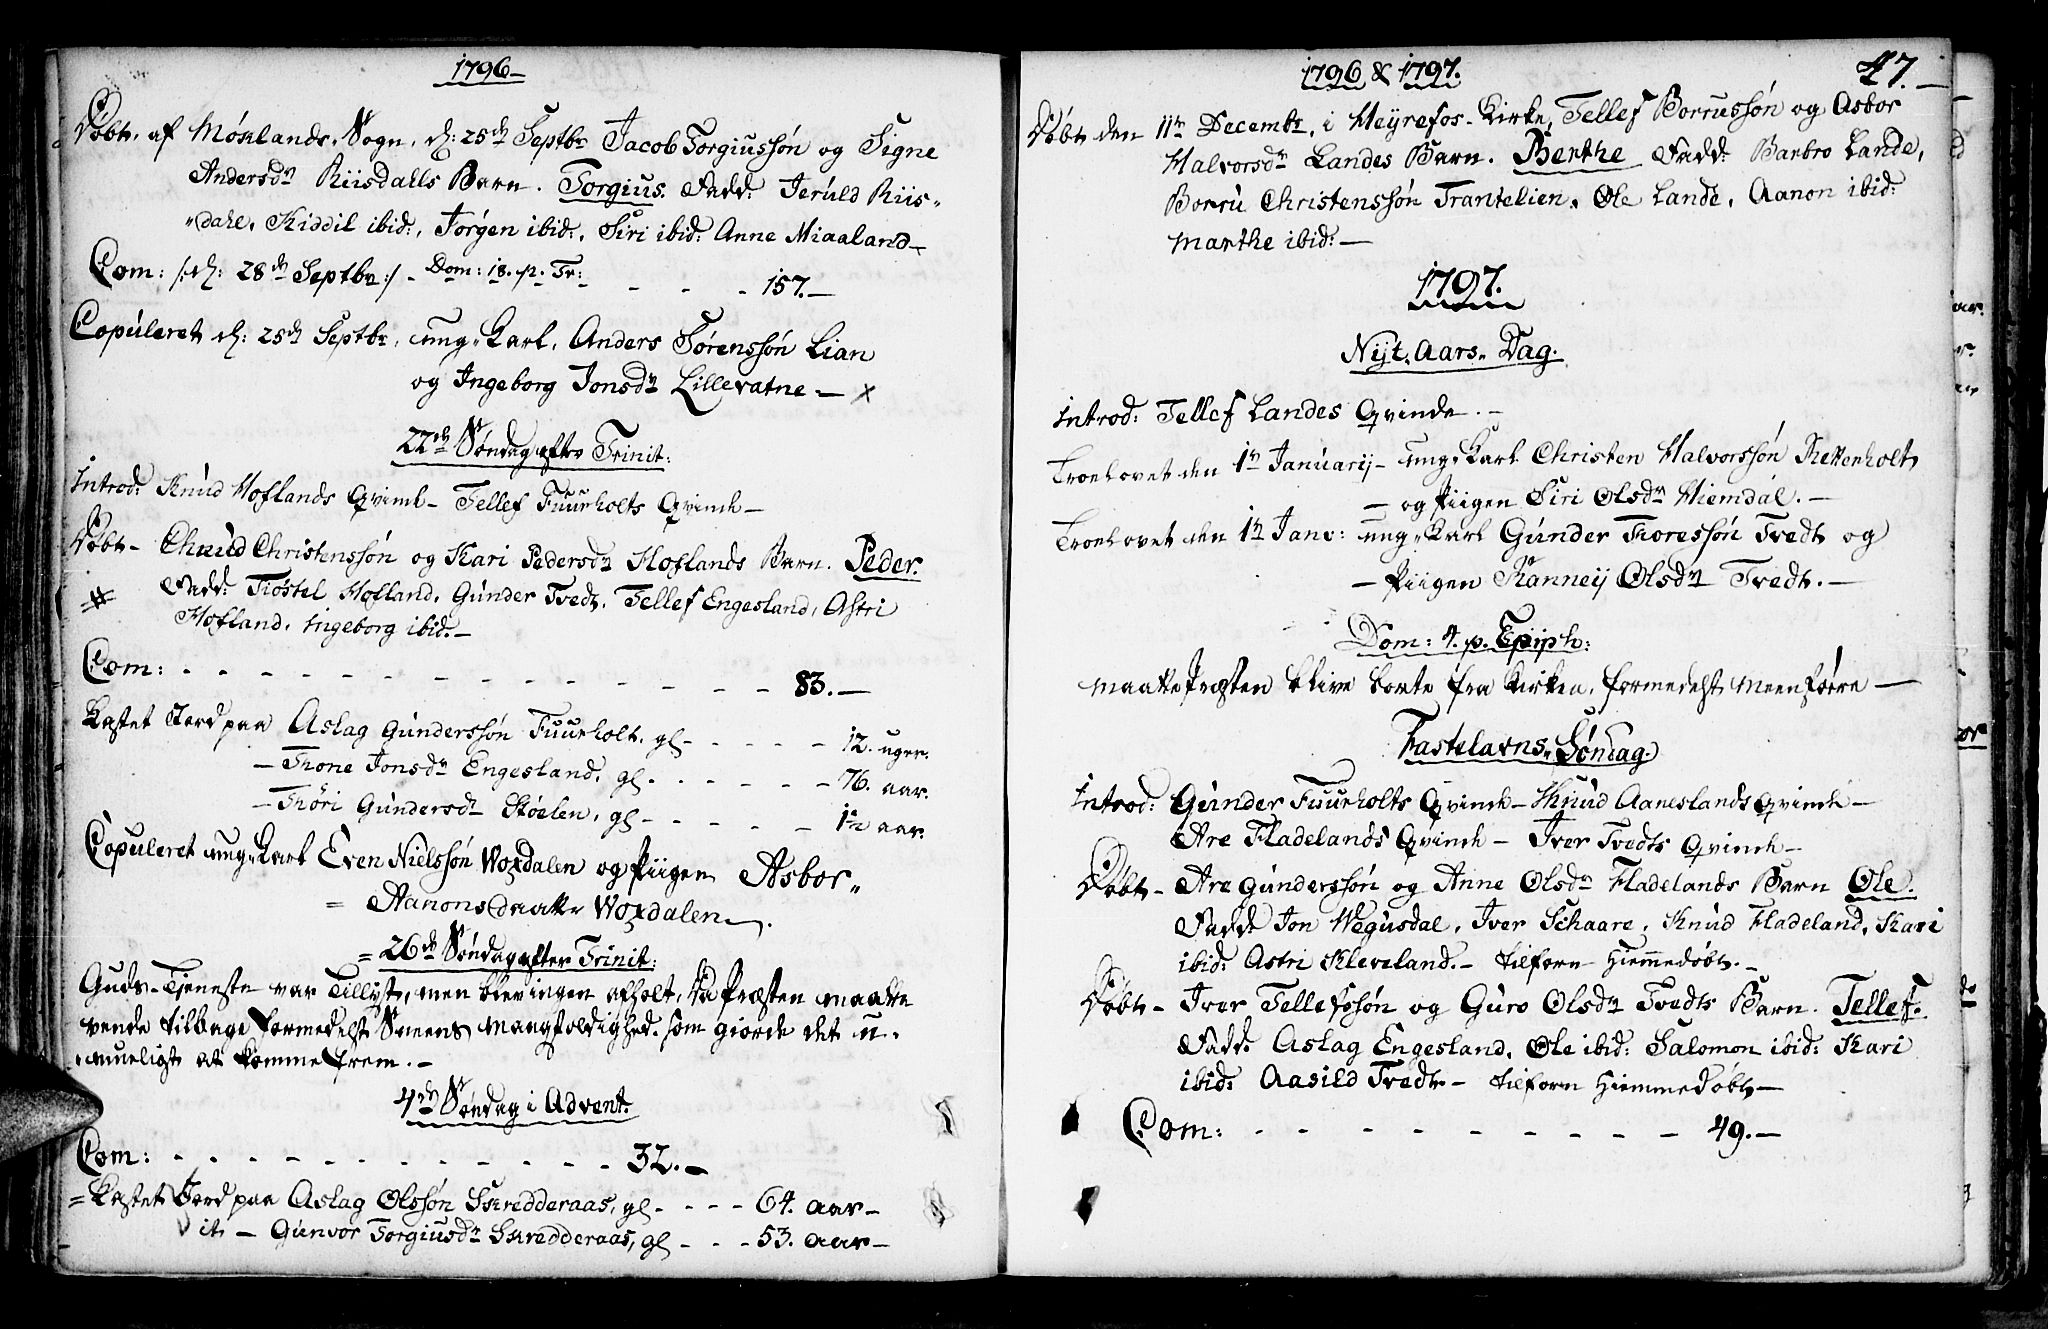 1796 –
Døbt, af Møsslands Sogn, d: 25de Septbr Jacob Torgiussøn og Signe
Andersdr Riisdalls Barn. Torgius. Fadd: Jeruld Riis„
„dahl, Kiddil ibid:, Jørgen ibid:, Siri ibid: Anne Miaaland –
Com: /:d: 28de Septbr:/ – Dom: 18. p. Tr: – – – 157. –
Copuleret d: 25de Septbr, ung„Karl, Anders Sørenssøn Lian
og Ingeborg Jonsdr Lillevatne – x
22de Søndag efter Trinit:
Introd: Knud Hoflands Qvinde – Tellef Fuurholts Qvinde –
Døbt – Chnud Christenssøn og Kari Pedersdr Hoflands Barn. Peder.
Fadd: Tiøstel Hofland, Gunder Tvedt, Tellef Engesland, Astri
Hofland, Ingeborg ibid. –
Com: – – – – – – – – – – – – 83. –
Kastet Jord paa Aslag Gunderssøn Fuurholt, gl – – – – – 12. uger.
– Thone Jonsdr Engesland, gl – – – – – – 76. aar.
– Thöri Gundersdr Støelen, gl – – – – – 1½ aar.
Copuleret ung„Karl Even Nielssøn Woxdalen og Piigen Asbor„
= Aanonsdaatter Woxdalen.
= 26de Søndag efter Trinit:
Guds-Tjeneste var Tillyst, men blev ingen afholt, da Præsten maatte
vende tilbage formedelst Sneens mangfoldighed, som giorde det u„
„mueligt at komme frem. –
4de Søndag i Advent.
Com: – – – – – – – – – – 32. –
= Kastet Jord paa Aslag Olssøn Skredderaas, gl – – – – 64. aar –
it – Gunvor Torgiusdr Skredderaas, gl – – – 53. aar –
1796 & 1797.
47. –
Døbt den 11te Decembr, i Heyrefos-Kirke, Tellef Borrussøn og Asbor
Halvorsdr Landes Barn. Berthe Fadd: Barbro Lande,
Borru Christenssøn Trantelien, Ole Lande, Aanon ibid:
Marthe ibid: –
1797.
Nyt„Aars„Dag.
Introd: Tellef Landes Qvinde. –
Troelovet den 1te Januarij – ung„Karl Christen Halvorssøn Rettenholt
– og Piigen Siri Olsdr Hiemdal. –
Troelovet den 1te Janv: ung„Karl Gunder Thoressøn Tvedt og
– Piigen Ranneij Olsdr Tvedt. –
Dom: 4. p. Epiph:
maatte Præsten blive borte fra Kirken, formedelst meenföere –
Fastelavns„Søndag.
Introd: Gunder Fuurholts Qvinde – Knud Aaneslands Qvinde –
Are Fladelands Qvinde – Iver Tvedts Qvinde –
Døbt – Are Gunderssøn og Anne Olsdr Fladelands Barn Ole.
Fadd: Jon Wegusdal, Iver Schaare, Knud Fladeland, Kari
ibid: Astri Kleveland. – tilforn Hiemmedøbt. –
Døbt – Iver Tellefssøn og Guro Olsdr Tvedts Barn. Tellef.
Fadd: Aslag Engesland, Ole ibid: Salomon ibid: Kari
ibid: Aasild Tvedt – tilforn Hiemmedøbt –
Com: – – – – – – – – – – 49. –